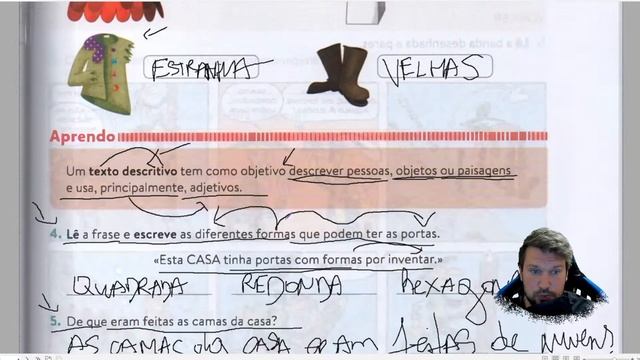 ESTRANHA VELHAS
Aprendo
Um texto descritivo tem como objetivo descrever pessoas, objetos ou paisagens
e usa, principalmente, adjetivos.
4. Lê a frase e escreve as diferentes formas que podem ter as portas.
«Esta CASA tinha portas com formas por inventar.»
QUADRADA REDONDA hexagon
5. De que eram feitas as camas da casa?
AS CAMAS da CASA eram feitas de nuvens